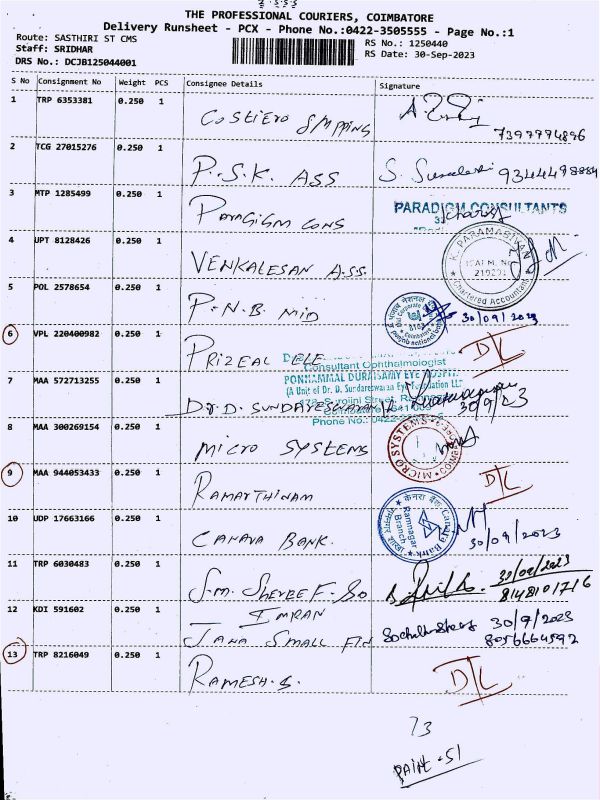 THE PROFESSIONAL COURIERS, COIMBATORE
Delivery Runsheet - PCX - Phone No.:0422-3505555 - Page No.:1
Route: SASTHIRI ST CMS
RS No.: 1250440
Staff: SRIDHAR
RS Date: 30-Sep-2023
DRS No.: DCJB125044001
S No Consignment No Weight PCS Consignee Details Signature
1 TRP 6353381 0.250 1 COSTIERO SHIPPING 7397774896
2 TCG 27015276 0.250 1 P.S.K. ASS S. 9344498884
3 MTP 1285499 0.250 1 PARAGIGM CONS PARADIGM CONSULTANTS
4 UPT 8128426 0.250 1 VENKALESAN A.SS. K. PARAMASIVAN Chartered Accountant
5 POL 2578654 0.250 1 P.N.B. MID 30/09/2023
6 VPL 220400982 0.250 1 PRIZEAL ELE D/L
Consultant Ophthalmologist
PONNAMMAL DURAISAMY EYE HOSPITAL
(A Unit of Dr. D. Sundareswaran Eye Foundation LLP
7 MAA 572713255 0.250 1 Dr. D. SUNDARESWARAN 30/9/23
Phone No.: 0422-
8 MAA 300269154 0.250 1 MICRO SYSTEMS MICRO SYSTEMS
9 MAA 944053433 0.250 1 RAMARTHINAM D/L
10 UDP 17663166 0.250 1 CANARA BANK. केनरा बैंक Canara Bank Ramnagar Branch 30/09/2023
11 TRP 6030483 0.250 1 S.M. SHEREEF. SO 30/09/2023
IMRAN 8148101716
12 KDI 591602 0.250 1 JANA SMALL FIN 30/9/2023
8056664592
13 TRP 8216049 0.250 1 RAMESH.S. D/L
13
PAID - 51